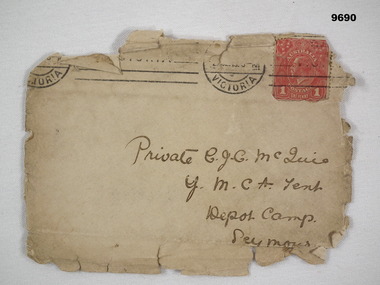 9690
VICTORIA
VICTORIA
1 1
Private C.J.C. McQuie
Y. M. C. A. Tent
Depot Camp.
Seymour